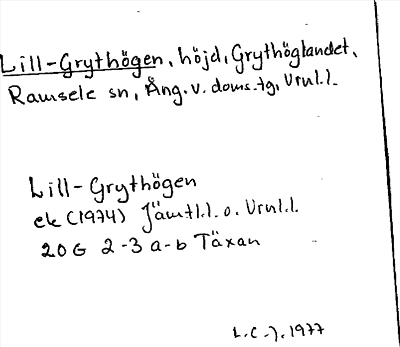 Lill-Grythögen, höjd, Grythöglandet,
Ramsele sn, Ång. v. doms.tg, Vrnl.l.
Lill-Grythögen
ek (1974) Jämtl.l. o. Vrnl.l.
20G 2-3 a-b Täxan
L.C.J. 1977